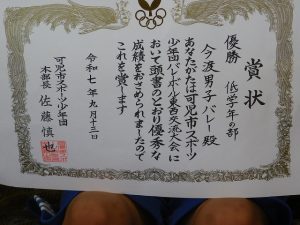 賞状
優勝 低学年の部
今渡男子バレー殿
あなたがたは可児市スポーツ
少年団バレーボール東西交流大会に
おいて頭書のとおり優秀な
成績をおさめられましたので
これを賞します
令和七年九月十三日
可児市スポーツ少年団
本部長 佐藤慎也